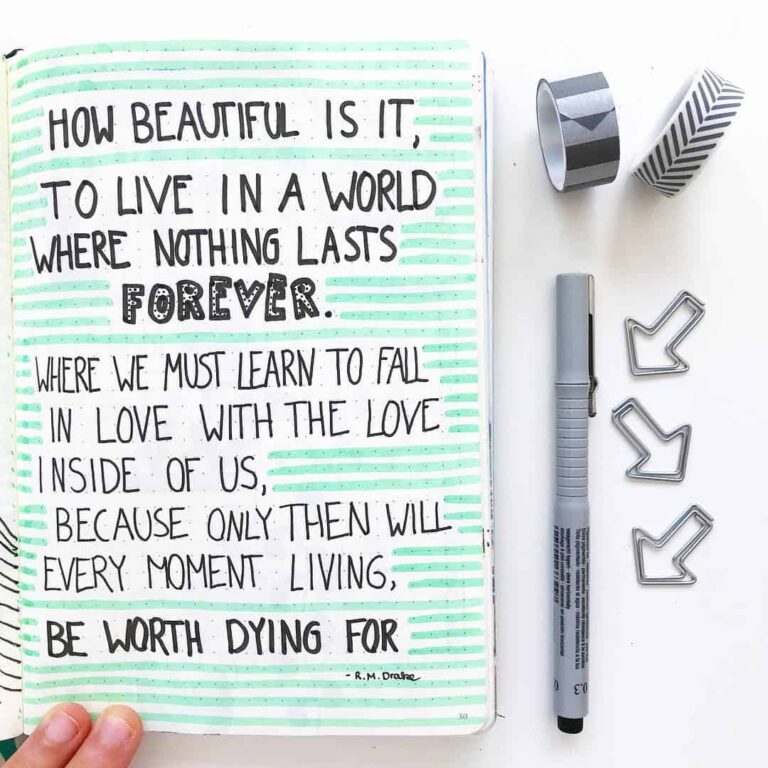 HOW BEAUTIFUL IS IT,
TO LIVE IN A WORLD
WHERE NOTHING LASTS
FOREVER.
WHERE WE MUST LEARN TO FALL
IN LOVE WITH THE LOVE
INSIDE OF US,
BECAUSE ONLY THEN WILL
EVERY MOMENT LIVING,
BE WORTH DYING FOR
- R.M. Drake
50
0.3